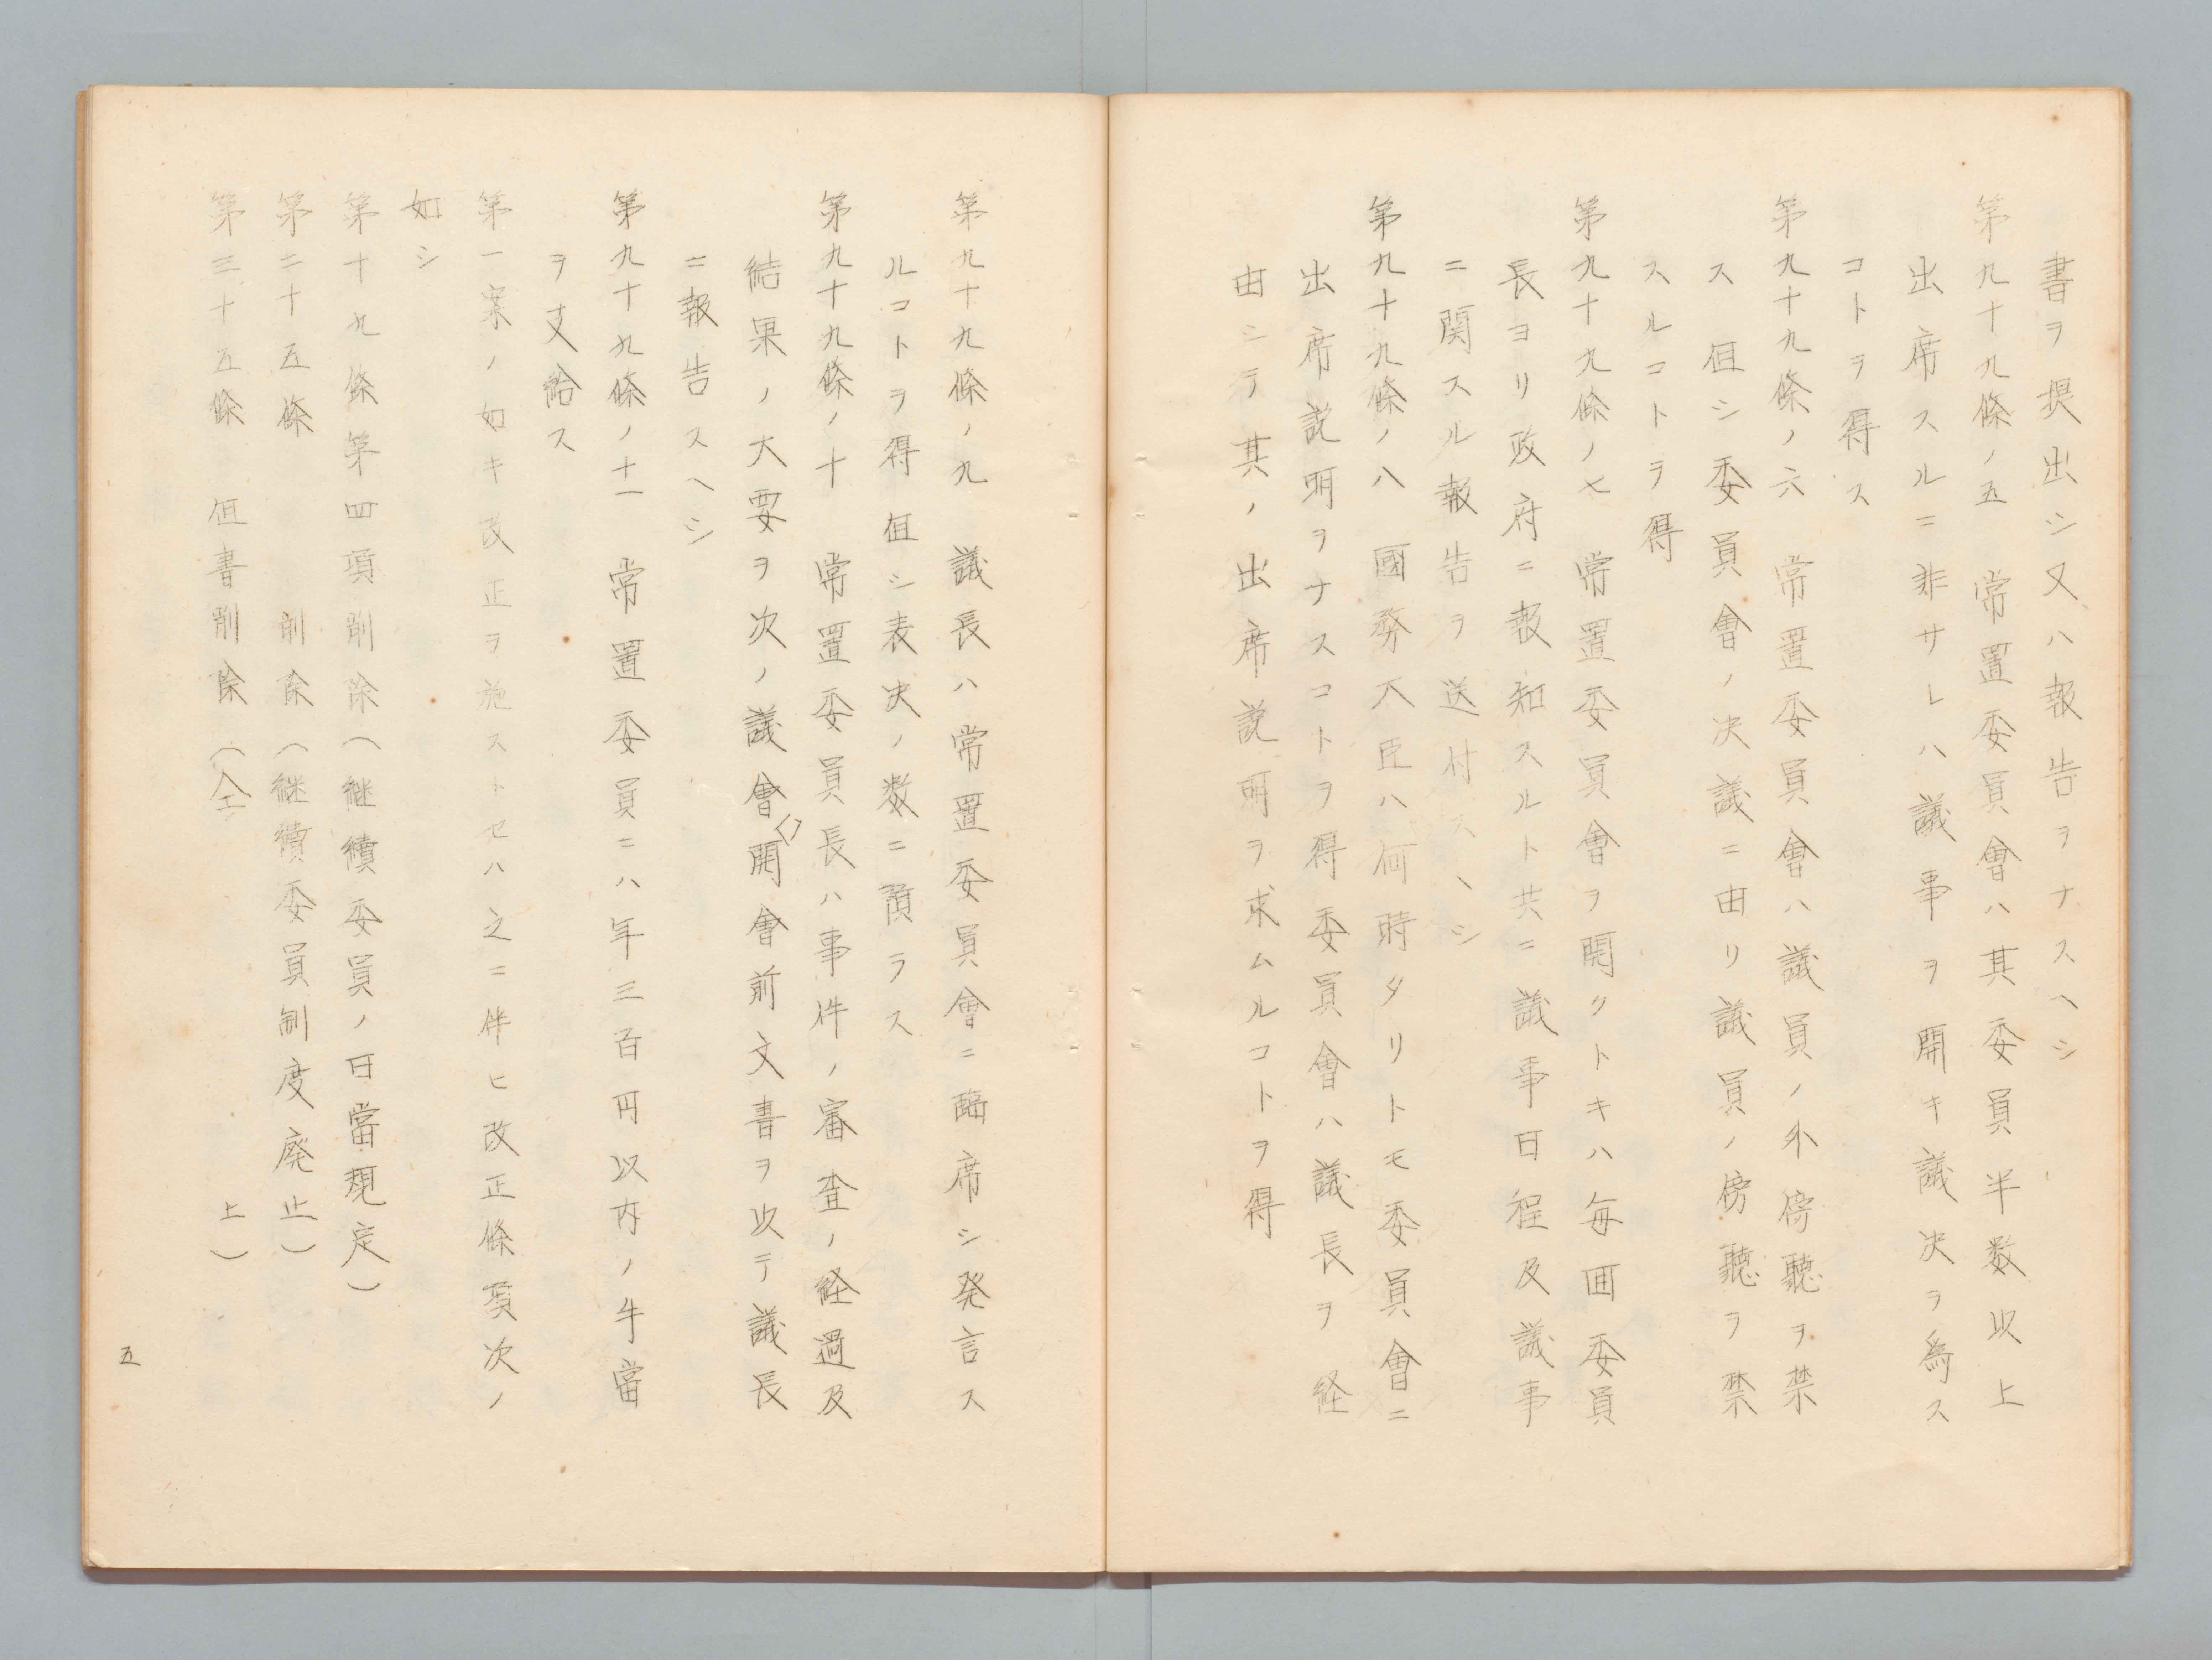 書ヲ提出シ又ハ報告ヲナスヘシ
第九十九條ノ五　常置委員會ハ其委員半数以上
出席スルニ非サレハ議事ヲ開キ議決ヲ為ス
コトヲ得ス
第九十九條ノ六　常置委員會ハ議員ノ外傍聴ヲ禁
ス但シ委員會ノ決議ニ由リ議員ノ傍聴ヲ禁
スルコトヲ得
第九十九條ノ七　常置委員會ヲ開クトキハ毎囬委員
長ヨリ政府ニ報知スルト共ニ議事日程及議事
ニ関スル報告ヲ送付スヘシ
第九十九條ノ八　國務大臣ハ何時タリトモ委員會ニ
出席説明ヲナスコトヲ得委員會ハ議長ヲ経
由シテ其ノ出席説明ヲ求ムルコトヲ得
第九十九條ノ九　議長ハ常置委員會ニ臨席シ発言ス
ルコトヲ得但シ表決ノ数ニ預ラス
第九十九條ノ十　常置委員長ハ事件ノ審査ノ経過及
結果ノ大要ヲ次ノ議會開會前文書ヲ以テ議長
ニ報告スヘシ
第九十九條ノ十一　常置委員ニハ年三百円以内ノ手當
ヲ支給ス
第一案ノ如キ改正ヲ施ストセハ之ニ伴ヒ改正條項次ノ
如シ
第十九條第四項削除（継續委員ノ日當規定）
第二十五條　削除（継續委員制度廃止）
第三十五條　但書削除（仝　上）
五